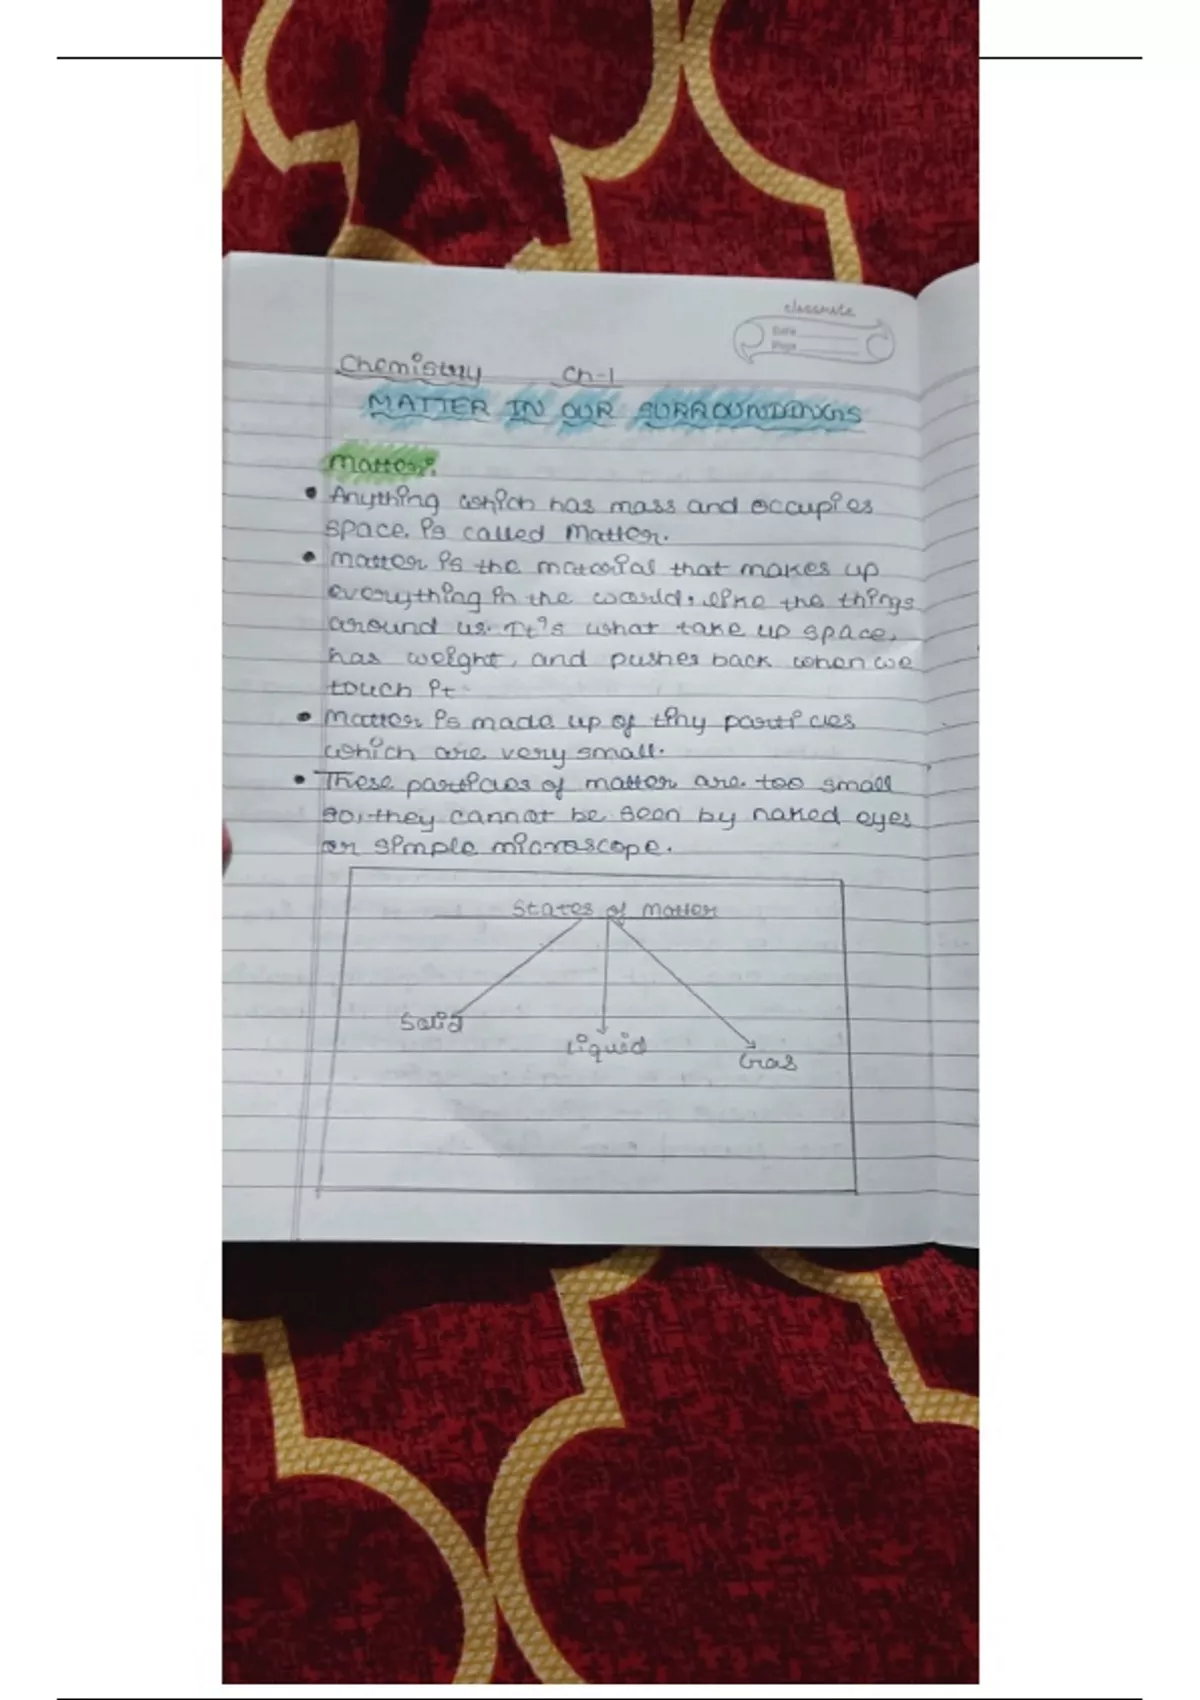 classmate
Date
Page
Chemistry Ch-1
MATTER IN OUR SURROUNDINGS
Matter:
• Anything which has mass and occupies
space. is called Matter.
• Matter is the material that makes up
everything in the world, like the things
around us. It's what take up space,
has weight, and pushes back when we
touch it
• Matter is made up of tiny particles
which are very small.
• These particles of matter are too small
so, they cannot be seen by naked eyes
or simple microscope.
States of Matter
Solid
Liquid
Gas